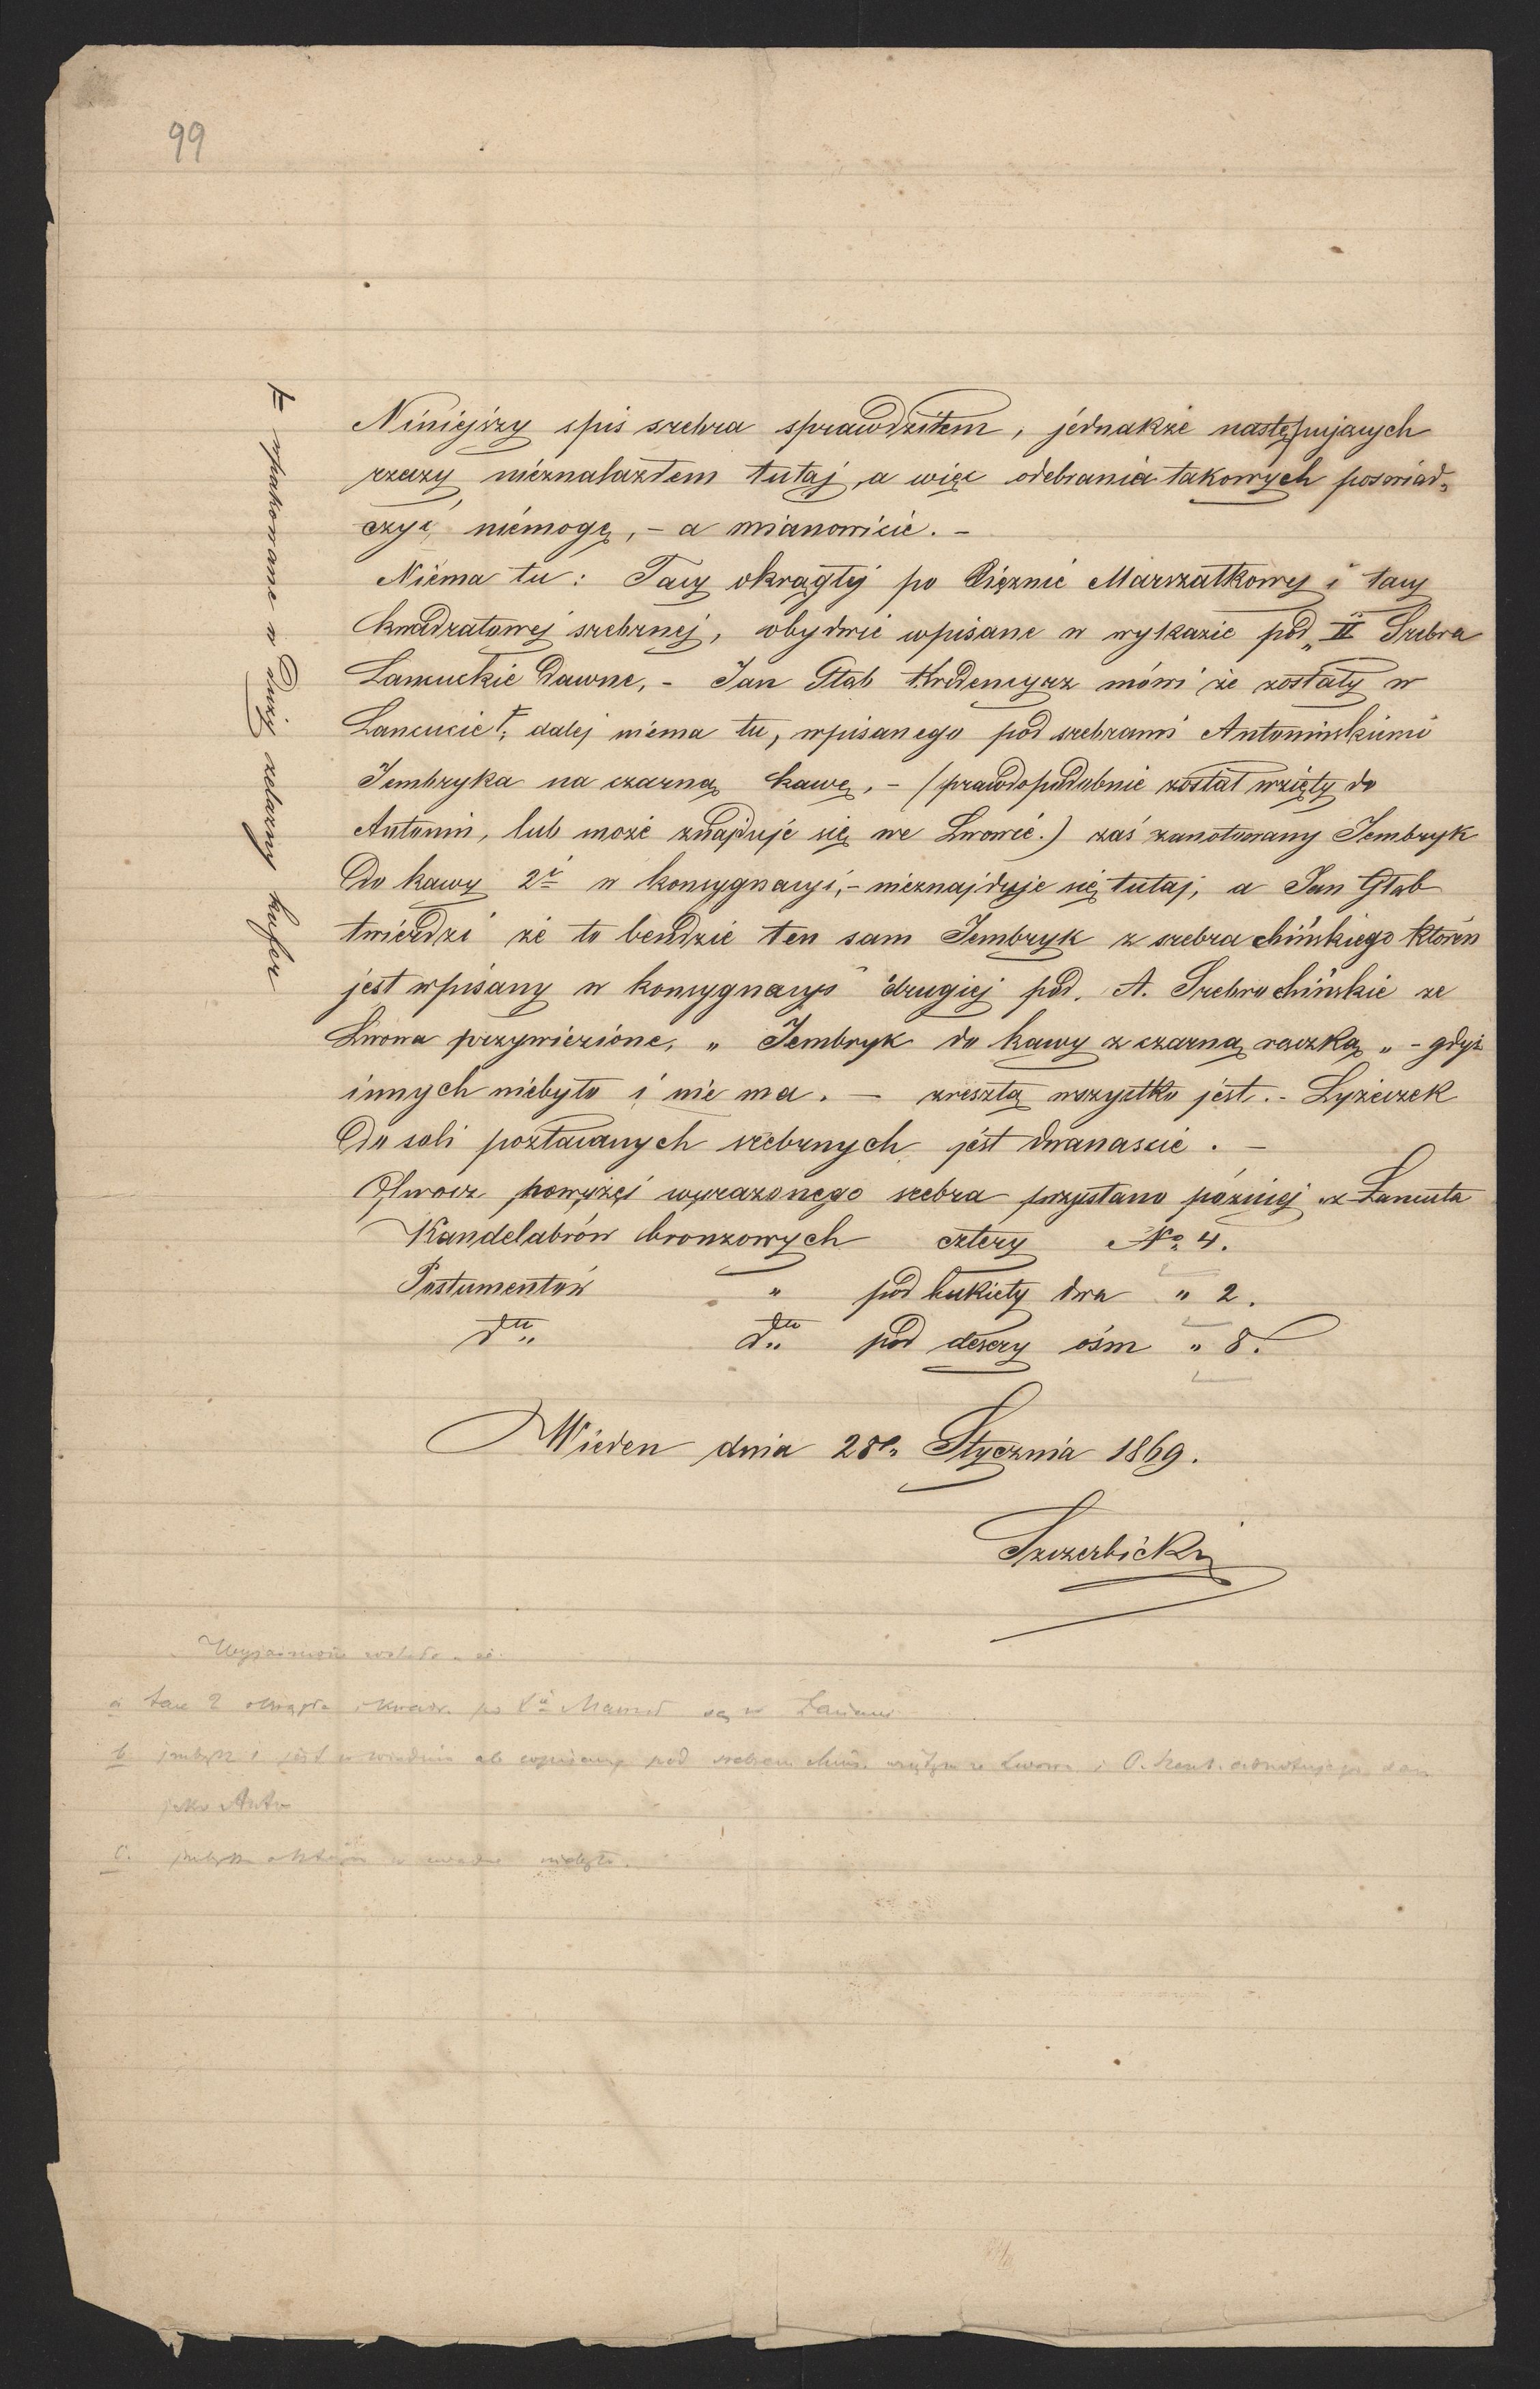 99
Niniejszy spis srebra sprawdziłem, jednakże następujących
rzeczy nieznalazłem tutaj, a więc odebrania takowych poswiad„
czyć niemogę, – a mianowicie. –
Niema tu: Tacy okrągłej po Xiężnie Marszałkowej i tacy
kwadratowej srebrnej, obydwie wpisane w wykazie pod „II Srebra
Lancuckie dawne, – Jan Głab Kredencyarz mówi że zostały w
Lancucie F; dalej niema tu, wpisanego pod srebrami Antonińskiemi
Jembryka na czarną kawę, – (prawdopodobnie został wzięty do
Antonin, lub może znajduje się we Lwowie.) zaś zanotowany Jembryk
do kawy 2i w konsygnacyi, – nieznajduje się tutaj, a Jan Głab
twierdzi że to bendzie ten sam Jembryk z srebra chińskiego ktoren
jest wpisany w konsygnacyi drugiej pod. A. Srebro chińskie ze
Lwowa przywiezione, „ Jembryk do kawy z czarną raczką „ – gdyż
innych niebyło i nie ma. – zresztą wszystko jest. – Lyżeczek
do soli pozłacanych srebrnych jest dwanascie. –
Oprocz powyżéj wyrazonego srebra przysłano pózniej z Lancuta
Kandelabrów bronzowych cztery No 4.
Postumentów „ pod bukiety dwa „ 2.
dtt„ dtt„ pod desery ośm „ 8.
Wieden dnia 28o„ Stycznia 1869.
Szczerbicki
F wpakowane w duży zelazny kufer
a tace 2 okrągła i kwadr. po są w
b. jembryk 1 jest w Wiedniu ale wpisany pod srebrem ze Lwowa i
jako Anto
c. niebyło.